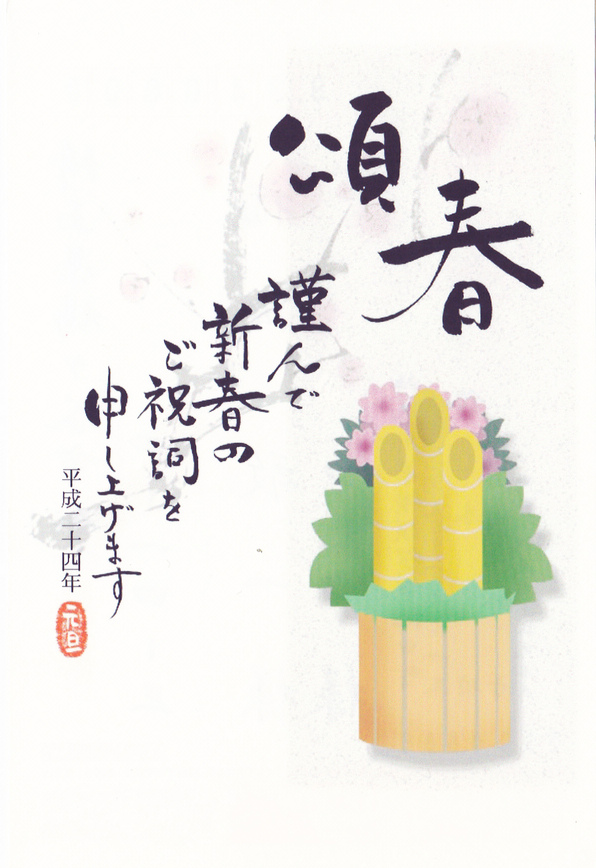 頌春
謹んで
新春の
ご祝詞を
申し上げます
平成二十四年
元旦